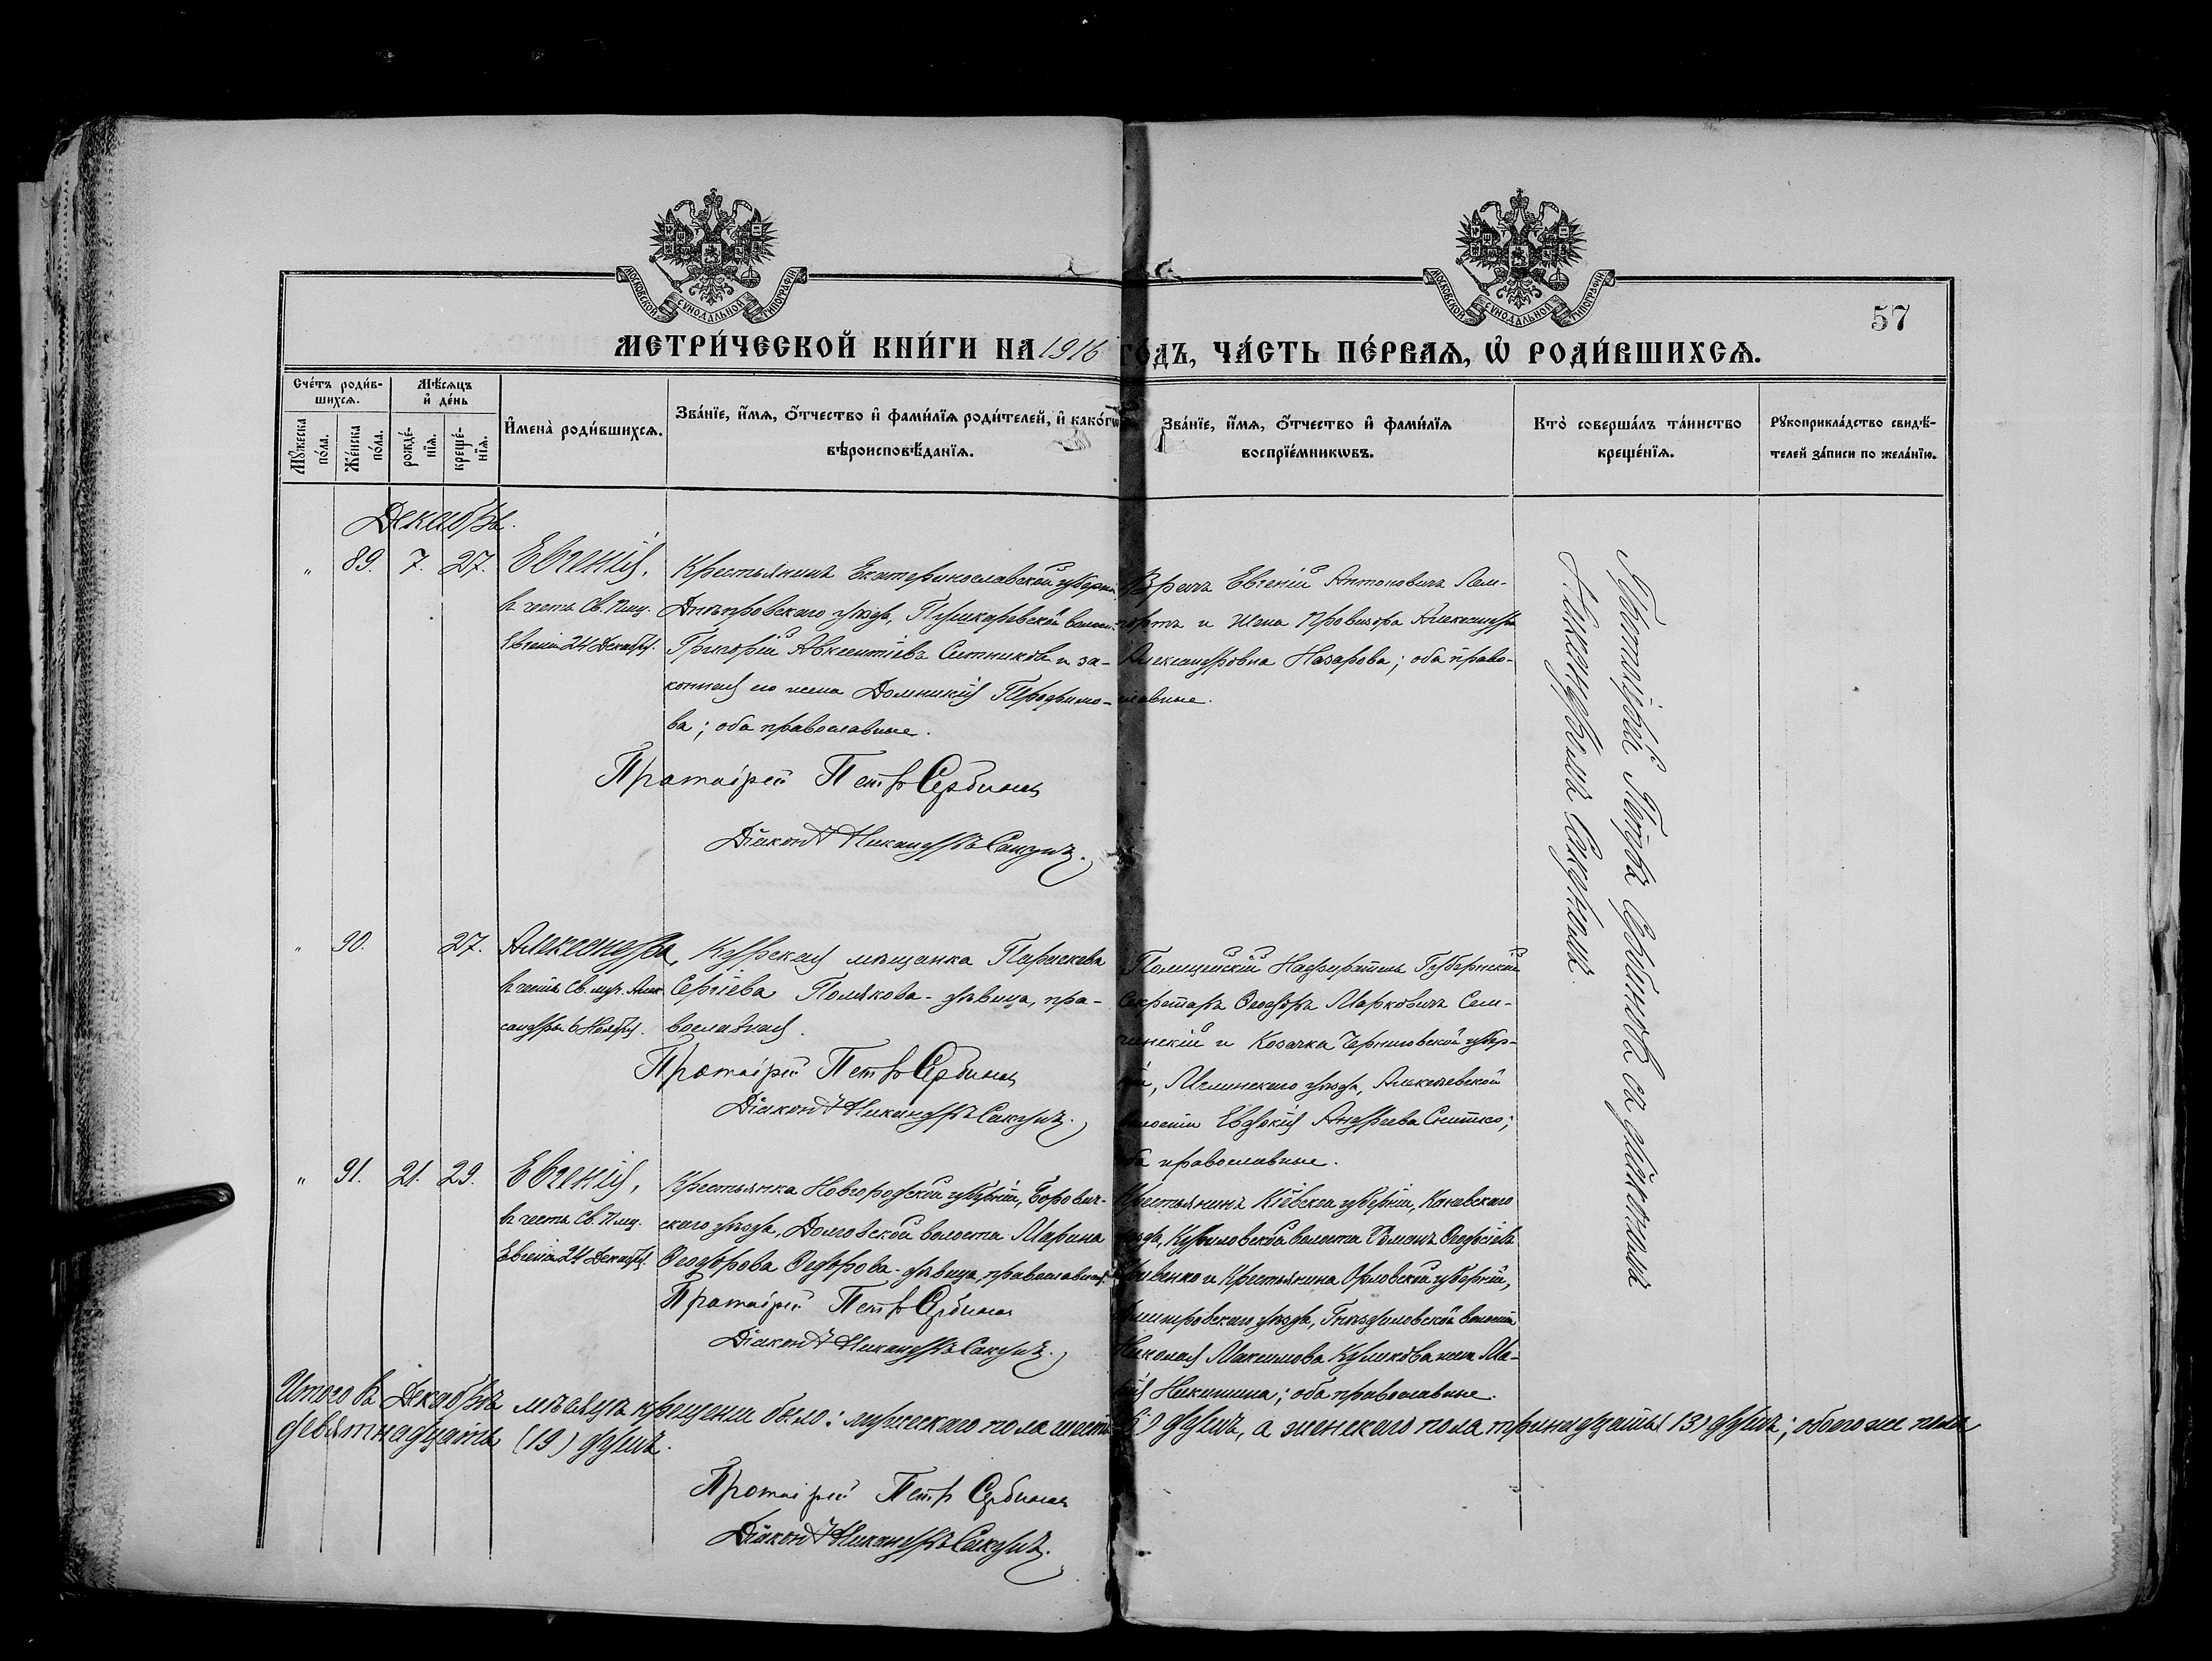 МОСКОВСКОЙ СѴНОДАЛЬНОЙ ТИПОГРАФІИ
МОСКОВСКОЙ СѴНОДАЛЬНОЙ ТИПОГРАФІИ
57
МЕТРИ́ЧЕСКОЙ КНИ́ГИ НА 1916 ГО́ДЪ, ЧА́СТЬ ПЕ́РВАѦ, Ѡ҆ РОДИ́ВШИХСѦ.
Сче́тъ роди́в-
шихсѧ.
Мꙋжеска по́ла.
Же́нска по́ла.
Мѣ́сѧцъ
и҆ де́нь
рожде́-
нїѧ.
креще́-
нїѧ.
И҆мена̀ роди́вшихсѧ.
Зва́нїе, и҆́мѧ, ѻ҆́тчество и҆ фами́лїѧ роди́телей, и҆ како́гѡ
вѣроисповѣ́данїѧ.
Зва́нїе, и҆́мѧ, ѻ҆́тчество и҆ фами́лїѧ
воспрїе́мникѡвъ.
Кто̀ соверша́лъ та́инство
креще́нїѧ.
Рꙋкоприкла́дство свидѣ́-
телей за́писи по жела́нїю.
Декабрь.
" 89. 7. 27.
Евгенія,
въ честь Св. Пмц.
Евгеніи 24 Декабря.
Крестьянинъ Екатеринославской губерніи
Днѣпровскаго уѣзда, волости
Григорій Авксентіевъ Ситниковъ и за-
конная его жена Домникія Трофимо-
ва; оба православные.
Протоіерей Петръ Сербиновъ
Діаконъ Никандръ Сакунъ.
Врачъ Евгеній Антоновичъ
и жена Провизора Александра
Александровна Назарова; оба право-
славные.
Протоіерей Петръ Сербиновъ съ діакономъ
Никандромъ Сакуномъ.
" 90. 27.
Александра,
въ честь Св. муч. Алек-
сандры 6 Ноября.
Курская мѣщанка Параскева
Сергіева Полякова - дѣвица, пра-
вославная.
Протоіерей Петръ Сербиновъ
Діаконъ Никандръ Сакунъ.
Полицейскій Надзиратель Губернскій
Секретарь Ѳеодоръ Марковичъ Сем-
чинскій и Козачка Черниговской губер-
ніи, Мглинскаго уѣзда,
волости Евдокія Андреева Снитко;
оба православные.
" 91. 21. 29.
Евгенія,
въ честь Св. Пмц.
Евгеніи 24 Декабря.
Крестьянка Новгородской губерніи, Борович-
скаго уѣзда, Долговской волости Марина
Ѳеодорова Ѳедорова - дѣвица, православная.
Протоіерей Петръ Сербиновъ
Діаконъ Никандръ Сакунъ.
Крестьянинъ Кіевской губерніи, Каневскаго
уѣзда, Куриловской волости Романъ Ѳеодосіевъ
и Крестьянина Орловской губерніи,
Дмитровскаго уѣзда, Гнѣздиловской волости
Николая Максимова Куликова жена Ма-
рія Никитина; оба православные.
Итого въ Декабрѣ мѣсяцѣ крещено было: мужескаго пола шесть (6) душъ, а женскаго пола тринадцать (13) душъ; обоего же пола
девятнадцать (19) душъ.
Протоіерей Петръ Сербиновъ
Діаконъ Никандръ Сакунъ.